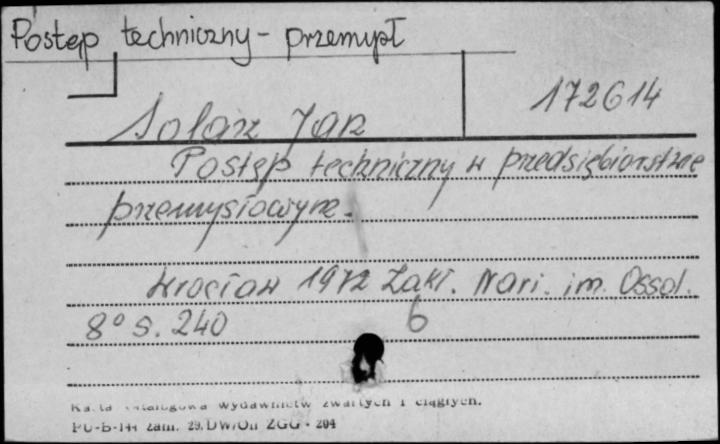 Postęp techniczny - przemysł
172614
Solarz Jan
Postęp techniczny w przedsiębiorstwie
przemysłowym.
Wrocław 1972 Zakł. Nari. im. Ossol.
8° s. 240 6
Karta katalogowa wydawnictw zwartych i ciągłych.
PU-B-144 zam. 29. DW/On ZGG - 204